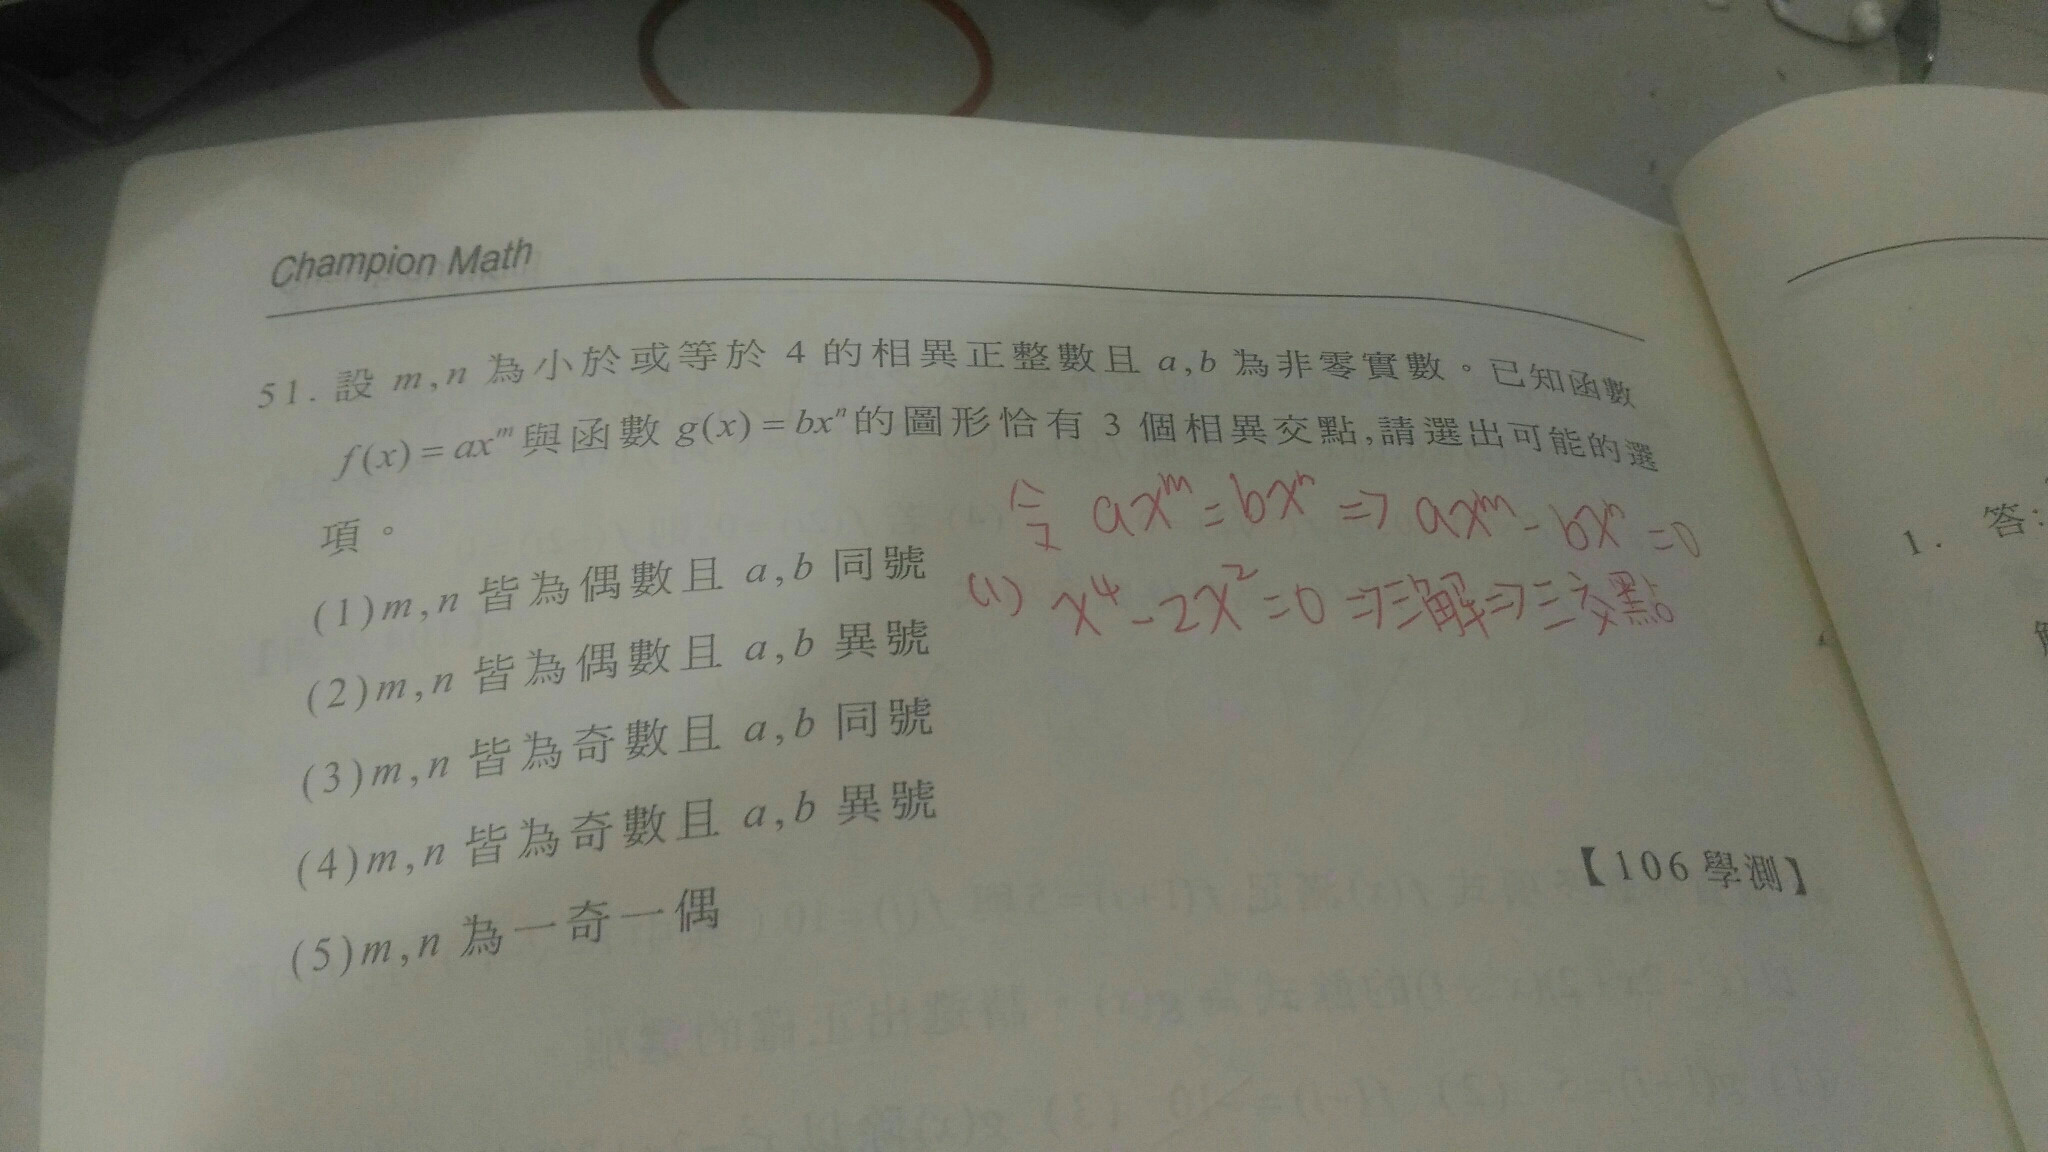 Champion Math
51. 設 m,n 為小於或等於 4 的相異正整數且 a,b 為非零實數。已知函數
f(x)=axᵐ與函數 g(x)=bxⁿ的圖形恰有 3 個相異交點,請選出可能的選
項。
令 axᵐ=bxⁿ ⇒ axᵐ-bxⁿ=0
(1)m,n 皆為偶數且 a,b 同號
(1) x⁴-2x²=0 ⇒三解⇒三交點
(2)m,n 皆為偶數且 a,b 異號
(3)m,n 皆為奇數且 a,b 同號
(4)m,n 皆為奇數且 a,b 異號
(5)m,n 為一奇一偶
【106學測】
1. 答: